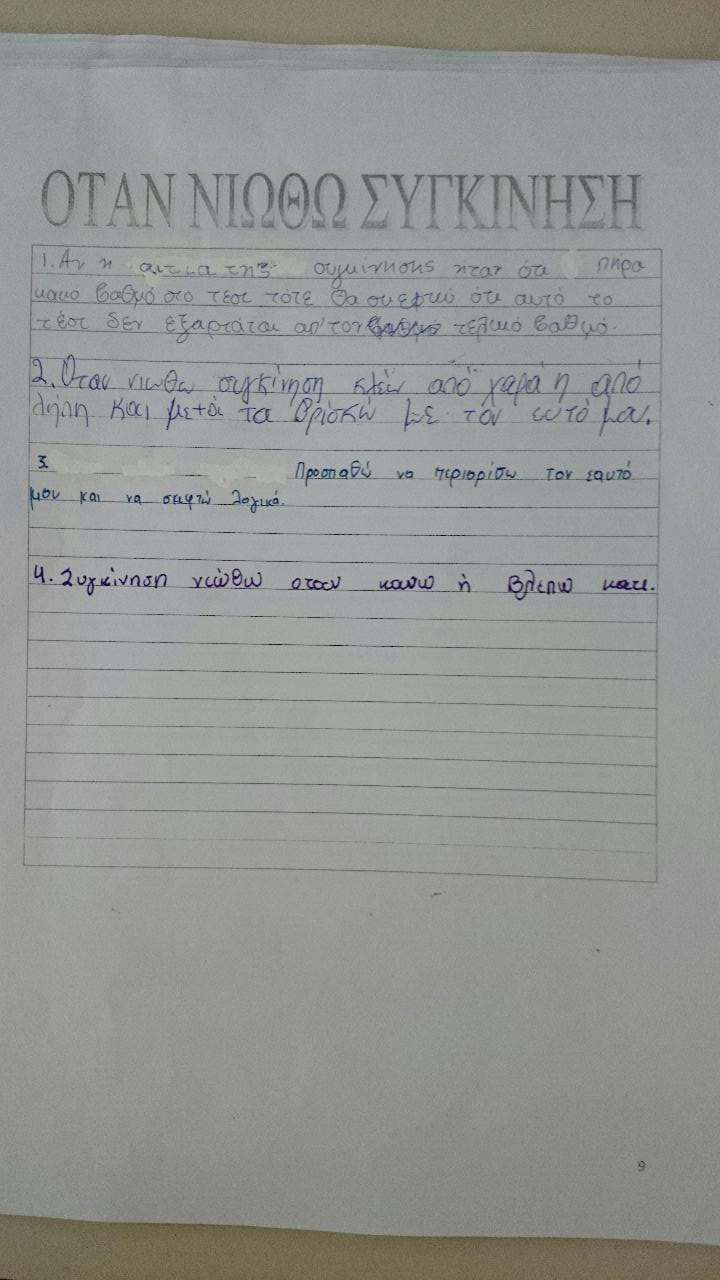 ΟΤΑΝ ΝΙΩΘΩ ΣΥΓΚΙΝΗΣΗ
1. Αν η αιτια της συγκίνησης ηταν ότι πηρα
κακο βαθμό στο τέστ τότε θα σκεφτώ ότι αυτό το
τέστ δεν εξαρτάται απ'τον τελικό βαθμό.
2. Όταν νιωθω συγκίνηση κλέω από χαρά η από
λύπη και μετά τα βρίσκω με τον ευτό μου.
3. Προσπαθώ να περιορίσω τον εαυτό
μου και να σκεφτώ λογικά.
4. Συγκίνηση νιώθω οταν κανω ή βλεπω κατι.
9